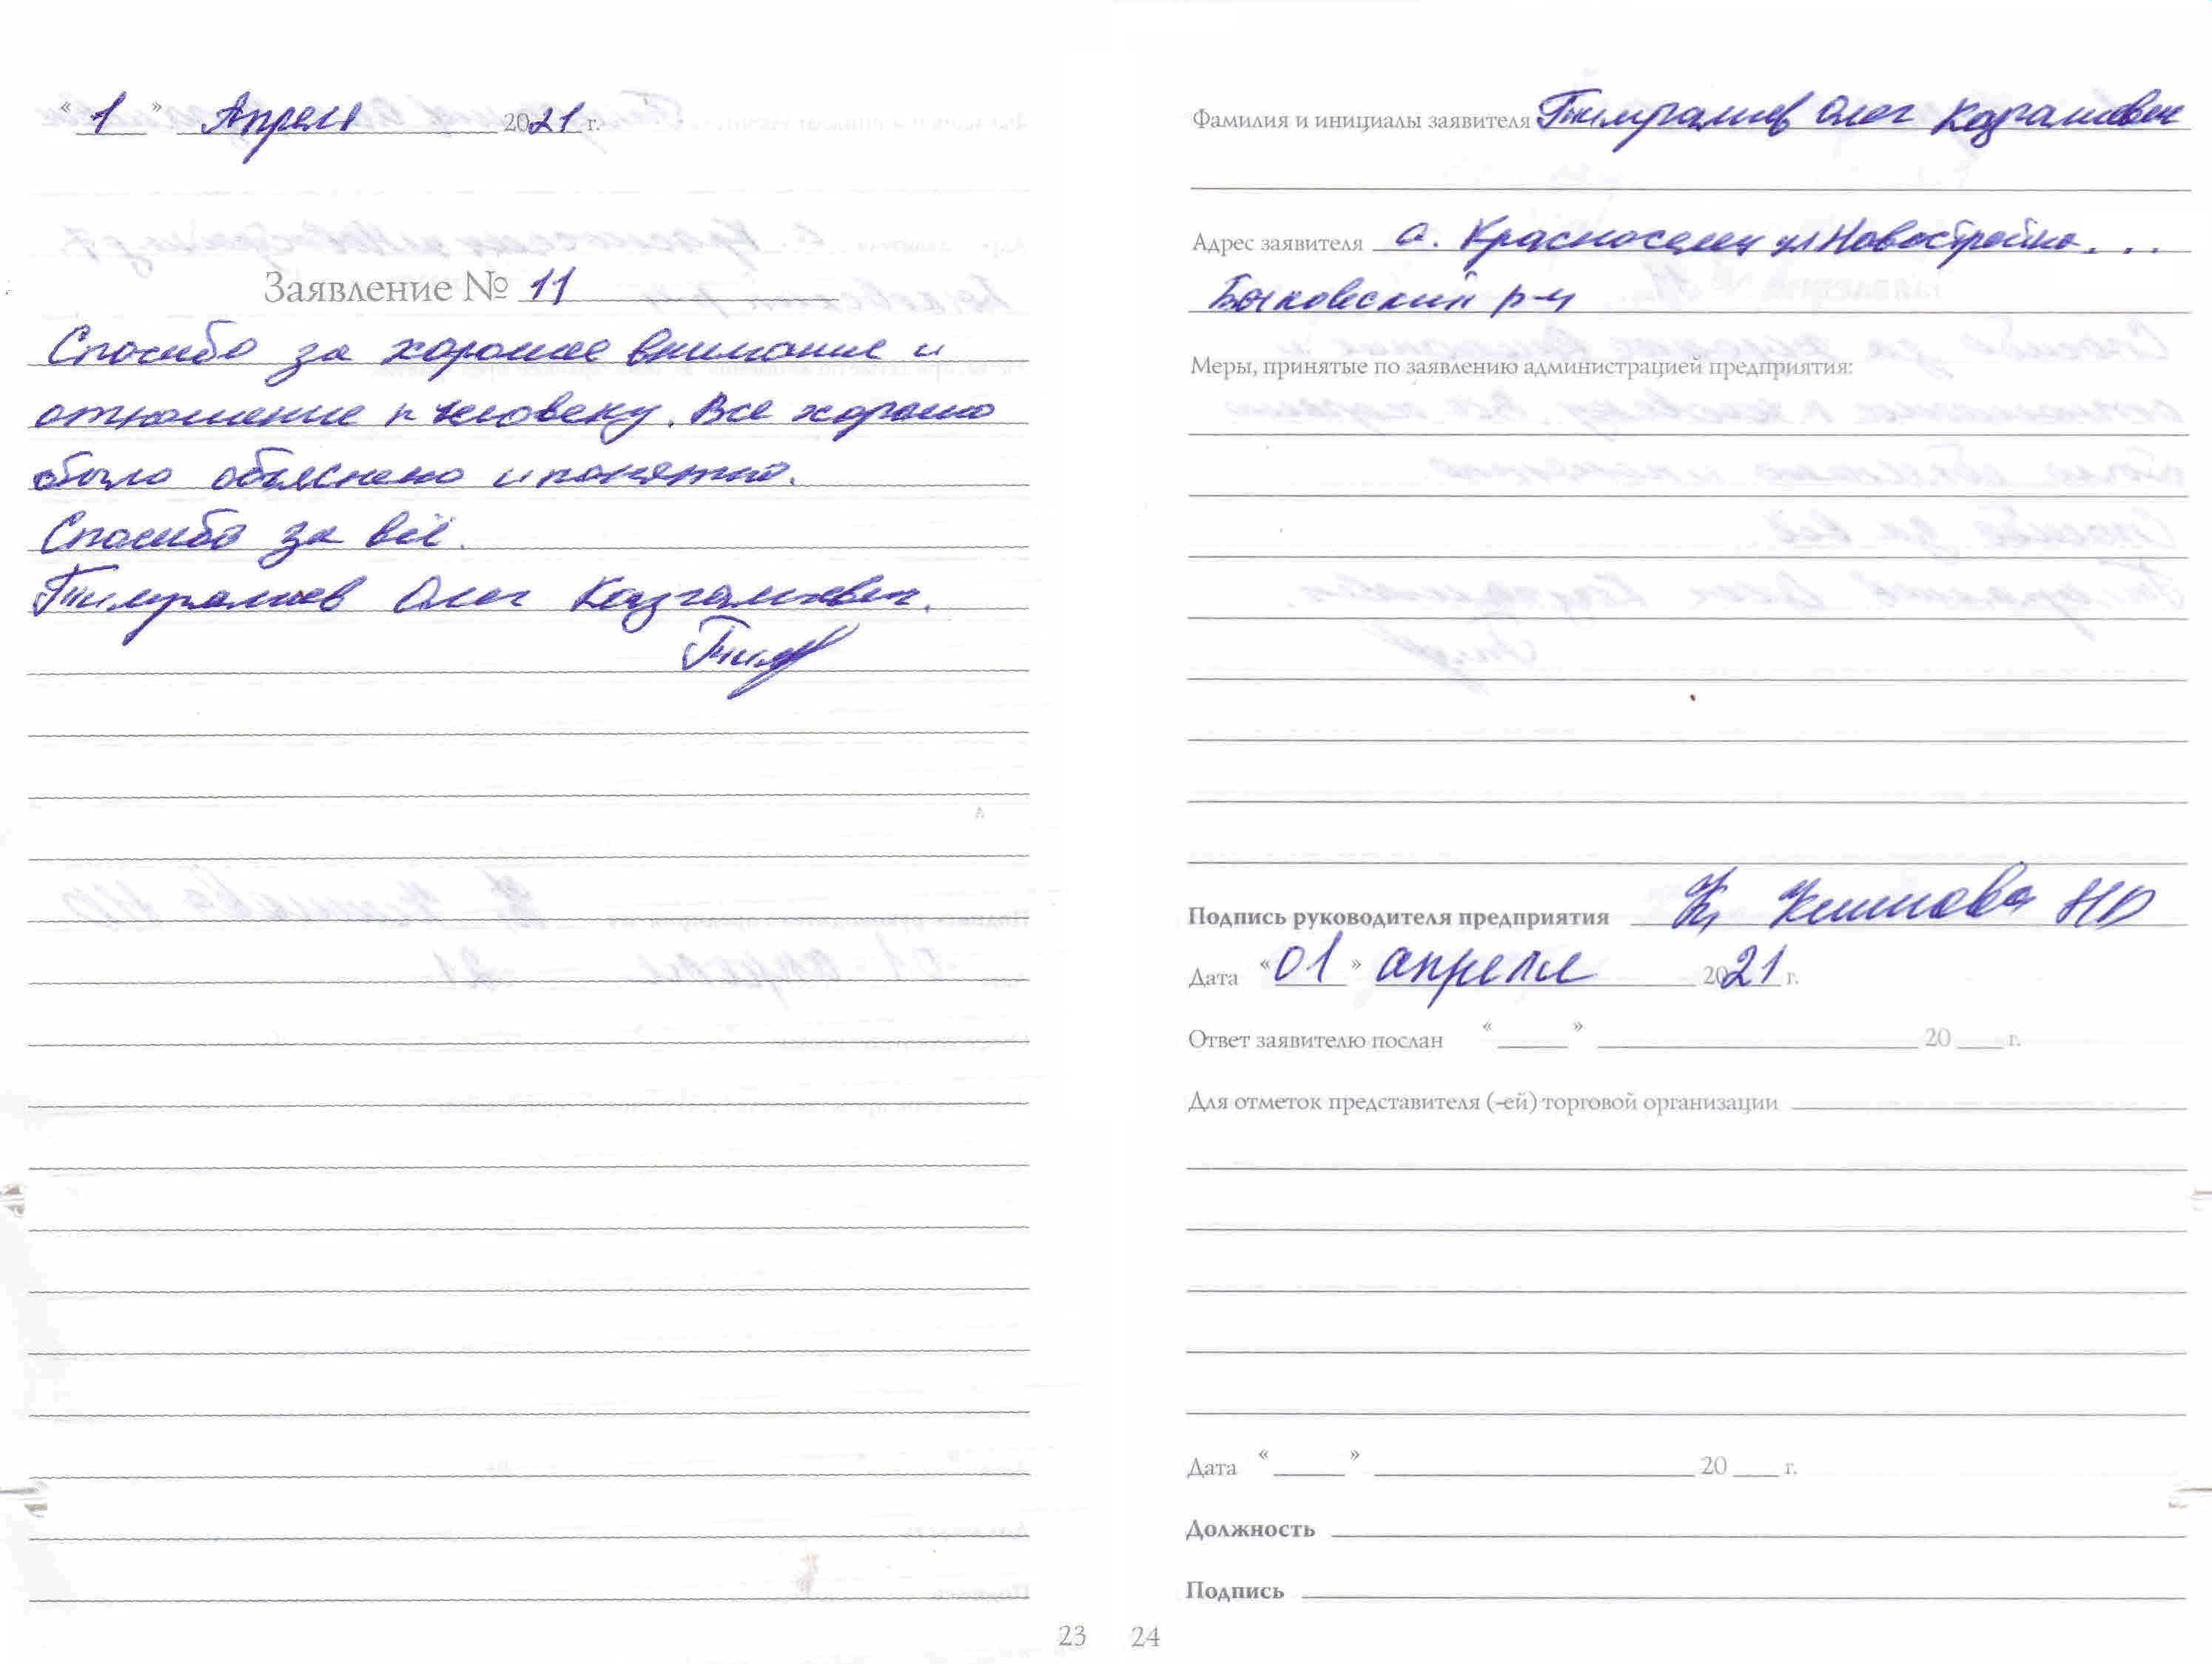 « 1 » Апреля 2021 г.
Заявление № 11
Спасибо за хорошее внимание и
отношение к человеку. Все хорошо
было объяснено и понятно.
Спасибо за всё.
Олег
23
Фамилия и инициалы заявителя Олег
Адрес заявителя с. Красноселец ул Новостройка . . .
Быковский р-н
Меры, принятые по заявлению администрацией предприятия:
Подпись руководителя предприятия
Дата « 01 » апреля 2021 г.
Ответ заявителю послан « » 20 г.
Для отметок представителя (-ей) торговой организации
Дата « » 20 г.
Должность
Подпись
24